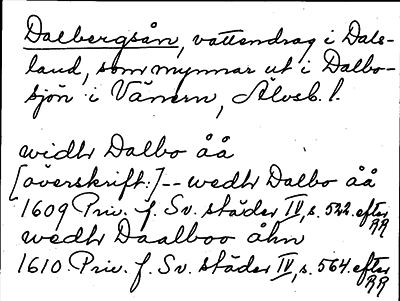 Dalbergsån, vattendrag i Dals-
land, som mynnar ut i Dalbo-
sjön i Vänern, Älvsb. l.
widh Dalbo åå
[överskrift:] -- wedh Dalbo åå
1609 Priv. f. Sv. städer IV, s. 522. efter
RR
wedh Daalboo åhn
1610 Priv. f. Sv. städer IV, s. 564. efter
RR